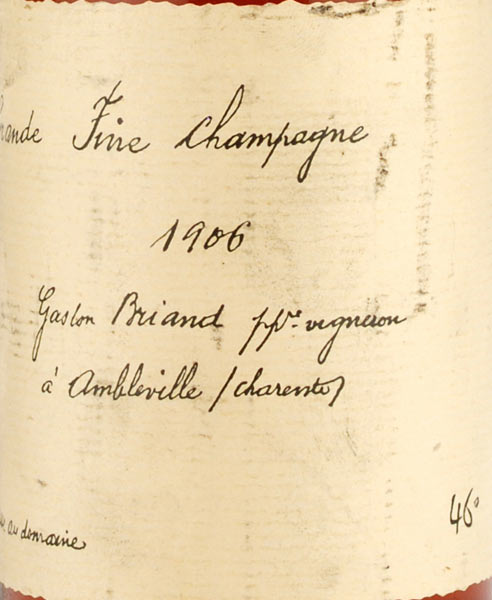 ande Fine Champagne
1906
Gaston Briand ppre. vigneron
à Ambleville (charente)
46°
au domaine